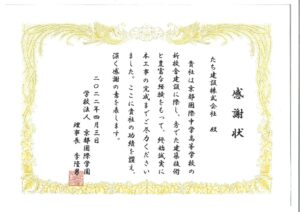 感謝状
たち建設株式会社 殿
貴社は京都国際中学高等学校の
新校舎建設に際し、秀でた建築技術
と豊富な経験をもって、終始誠実に
本工事の完成までご尽力ください
ました。ここに貴社の功績を讃え、
深く感謝の意を表します。
二〇二二年四月三日
学校法人 京都国際学園
理事長 李隆男